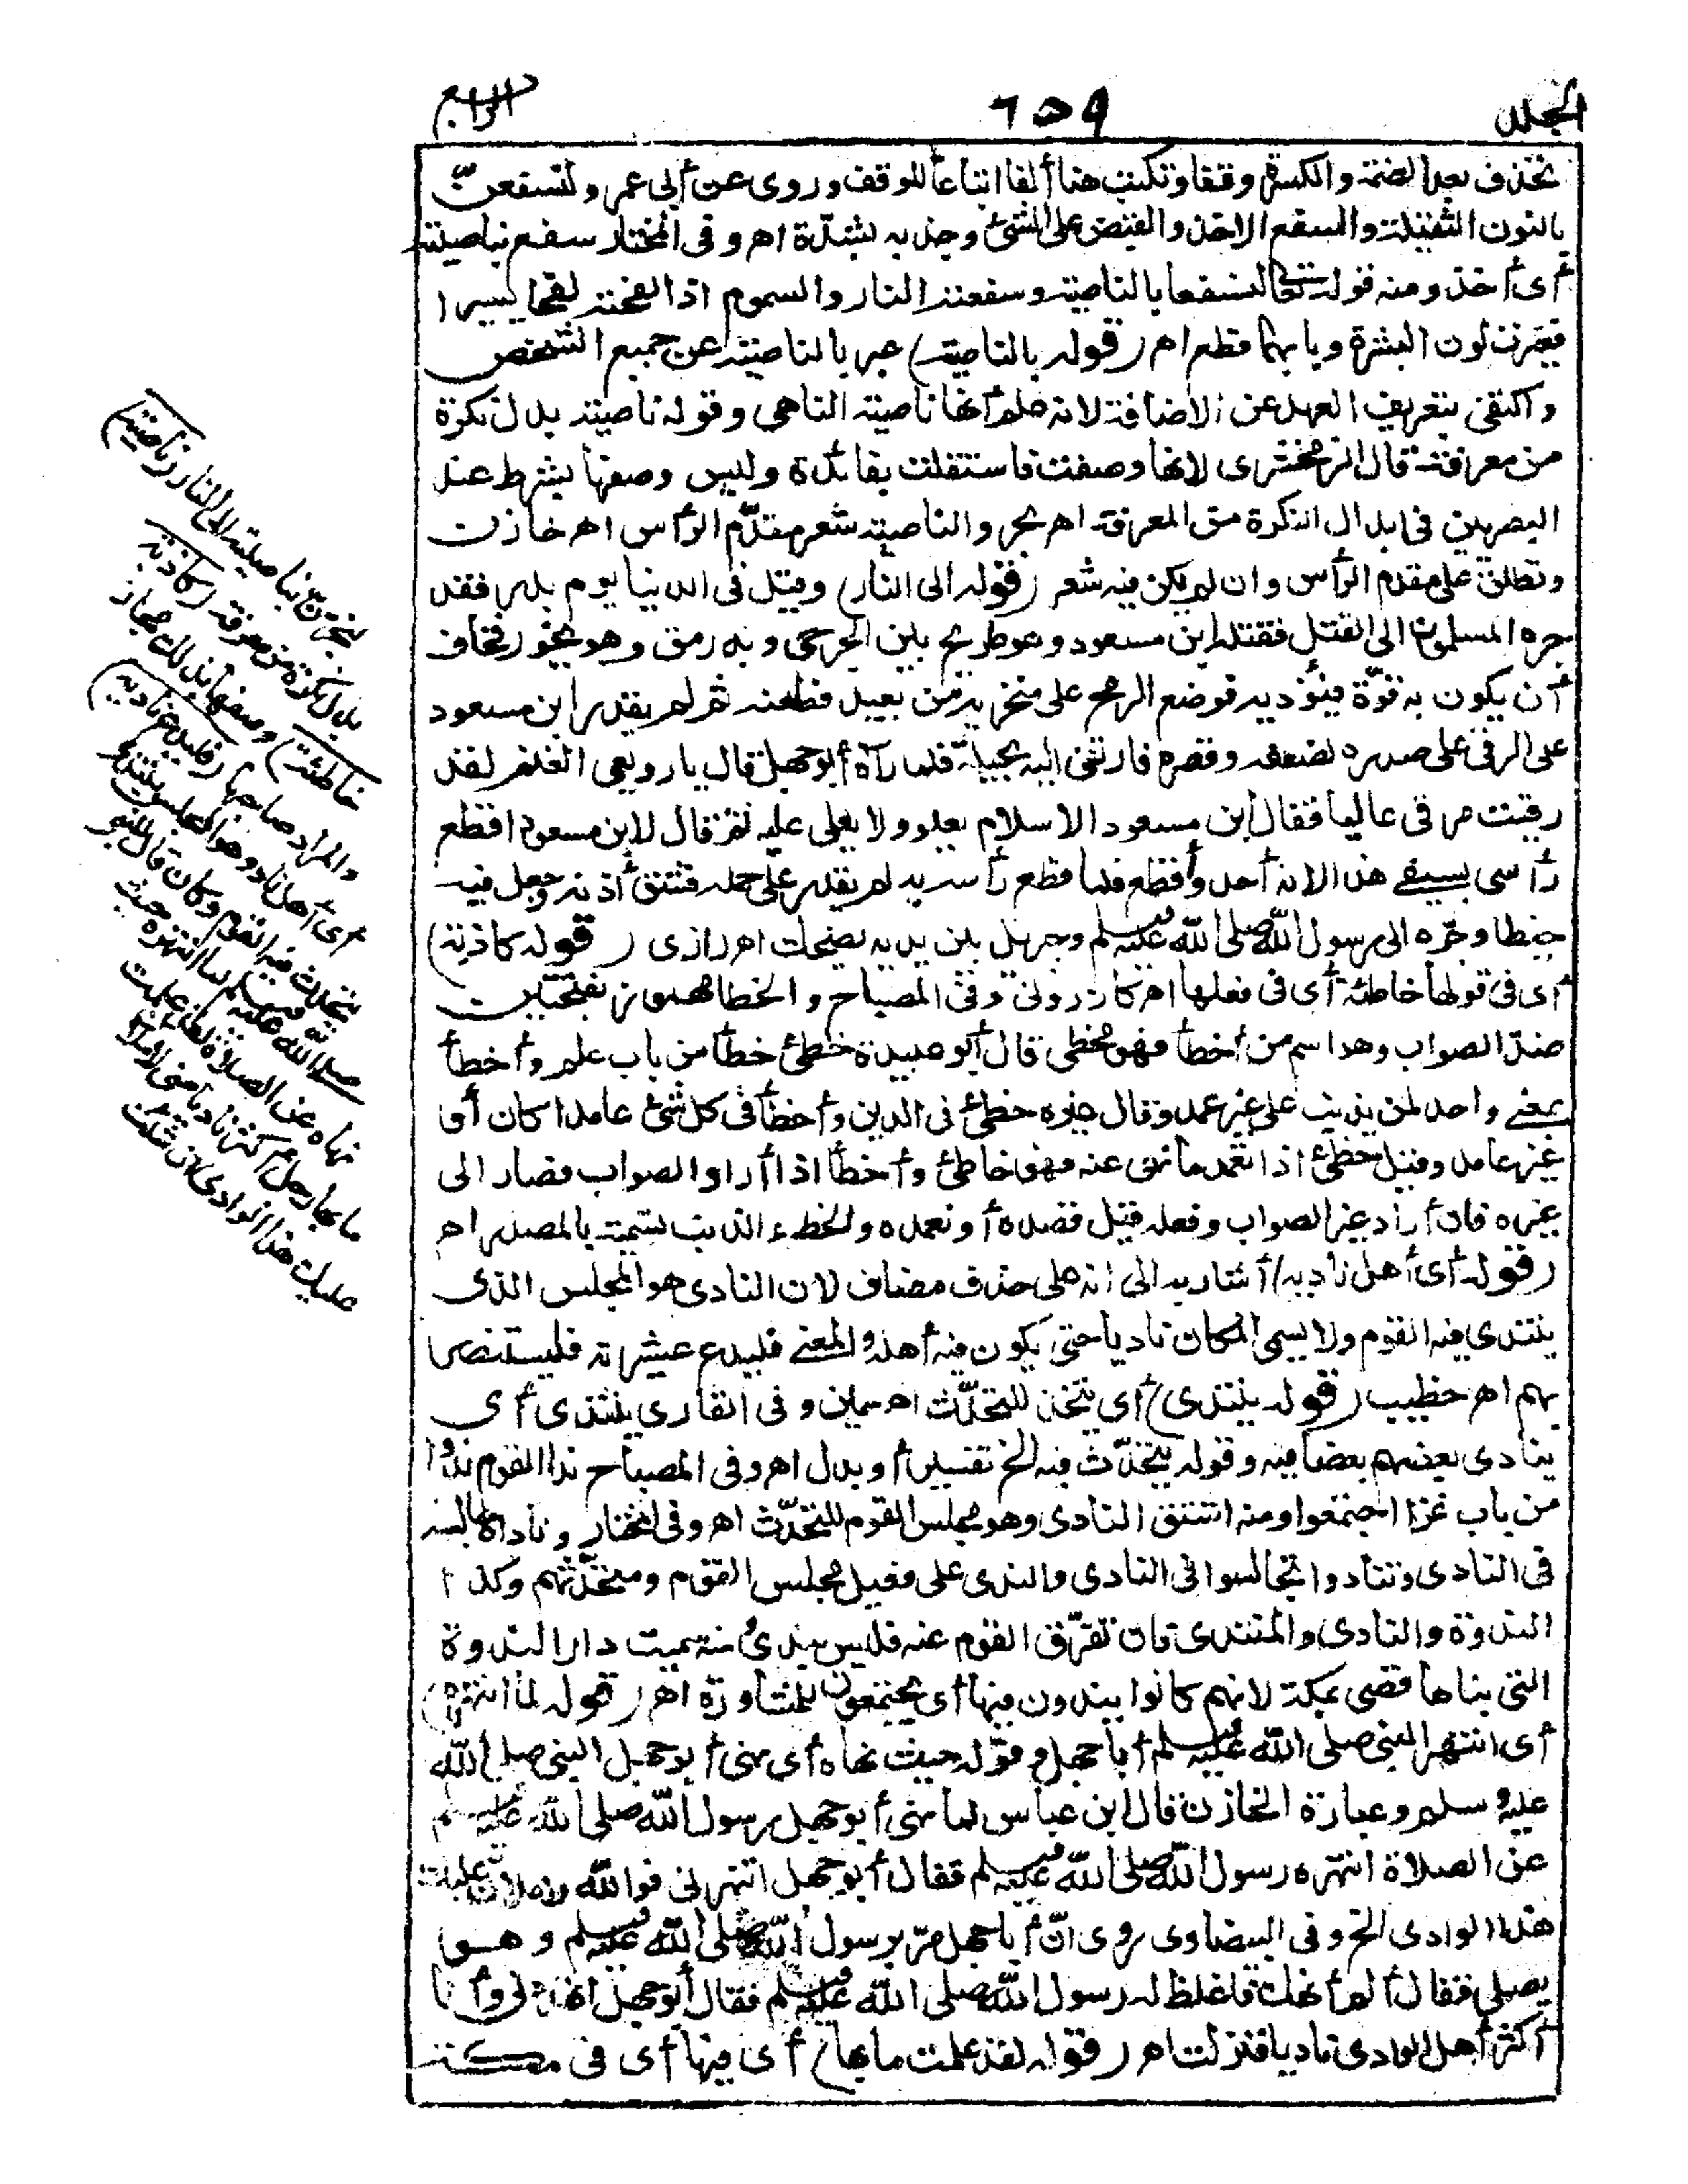 المجلد
٦٥٩
الرابع
تحذف بعد الضمة والكسرة وقفا وتكتب هنا ألفا اتباعا للوقف وروى عن أبى عمر ولنسفعنّ
بالنون الثقيلة والسفع الاخذ والقبض على الشئ وجذبه بشدّة اه وفى المختار سفع بناصيته
أى أخذ ومنه قوله تعالى لنسفعا بالناصية وسفعته النار والسموم اذا لفحته لفحا يسيرا
فغيرت لون البشرة وبابهما قطع اه (قوله بالناصية) عبر بالناصية عن جميع الشخص
واكتفى بتعريف العهد عن الاضافة لانه علم أنها ناصية الناهى وقوله ناصية بدل نكرة
من معرفة قال الزمخشرى لانها وصفت فاستقلت بفائدة وليس وصفها بشرط عند
البصريين فى ابدال النكرة من المعرفة اه بحر والناصية شعر مقدّم الرأس اه خازن
وتطلق على مقدم الرأس وان لم يكن فيه شعر (قوله الى النار) وقيل فى الدنيا يوم بدر فقد
جره المسلمون الى القتل فقتله ابن مسعود وهو طريح بين الجرحى وبه رمق وهو يخور فخاف
أن يكون به قوّة فيؤذيه فوضع الرمح على منخريه من بعيد فطعنه ثم لم يقدر ابن مسعود
على الرقى على صدره لضعفه وقصره فارتقى اليه بحيلة فلما رآه أبو جهل قال يا رويعى الغنم لقد
رقيت مرقى عاليا فقال ابن مسعود الاسلام يعلو ولا يعلى عليه ثم قال لابن مسعود اقطع
رأسى بسيفى هذا لانه أحد وأقطع فلما قطع رأسه به لم يقدر على حمله فشق أذنه وجعل فيه
خيطا وجره الى رسول الله صلى الله عليه وسلم وجبريل بين يديه يضحك اه رازى (قوله كاذبة)
أى فى قولها خاطئة أى فى فعلها اه كازرونى وفى المصباح والخطأ مهموز بفتحتين
ضدّ الصواب وهو اسم من أخطأ فهو مخطئ قال أبو عبيدة خطئ خطأ من باب علم وأخطأ
بمعنى واحد لمن يذنب على غير عمد وقال غيره خطئ فى الدين وأخطأ فى كل شئ عامدا كان أو
غير عامد وقيل خطئ اذا تعمد ما نهى عنه فهو خاطئ وأخطأ اذا أراد الصواب فصار الى
غيره فان أراد غير الصواب وفعله قيل قصده أو تعمده والخطء الذنب تسمية بالمصدر اه
(قوله أى أهل ناديه) أشار به الى انه على حذف مضاف لان النادى هو المجلس الذى
ينتدى فيه القوم ولا يسمى المكان ناديا حتى يكون فيه أهله والمعنى فليدع عشيرته فليستنصر
بهم اه خطيب (قوله ينتدى) أى يتخذ للتحدّث اه سمين وفى القارى ينتدى أى
ينادى بعضهم بعضا فيه وقوله يتحدّث فيه الخ تفسير أو بدل اه وفى المصباح ندا القوم ندوا
من باب غزا اجتمعوا ومنه اشتق النادى وهو مجلس القوم للتحدّث اه وفى المختار وناداه جالسه
فى النادى وتنادوا تجالسوا فى النادى والندى على فعيل مجلس القوم ومتحدّثهم وكذا
الندوة والنادى والمنتدى فان تفرّق القوم عنه فليس بندى ومنه سميت دار الندوة
التى بناها قصى بمكة لانهم كانوا يندون فيها أى يجتمعون للمشاورة اه (قوله لما انتهره)
أى انتهر النبى صلى الله عليه وسلم أبا جهل وقوله حيث نهاه أى نهى أبو جهل النبى صلى الله
عليه وسلم وعبارة الخازن قال ابن عباس لما نهى أبو جهل رسول الله صلى الله عليه وسلم
عن الصلاة انتهره رسول الله صلى الله عليه وسلم فقال أبو جهل اتنهرنى فوالله لاملأنّ عليك
هذا الوادى الخ وفى البيضاوى روى انّ أبا جهل مرّ برسول الله صلى الله عليه وسلم وهو
يصلى فقال ألم أنهك فاغلظ له رسول الله صلى الله عليه وسلم فقال أبو جهل اتهددنى وأنا
أكثر أهل الوادى ناديا فنزلت اه (قوله لقد علمت ما بها) أى فيها أى فى مكة
بناصيته الى النار (ناصية)
بدل نكرة من معرفة (كاذبة
خاطئة) وصفها بذلك مجاز
والمراد صاحبها (فليدع ناديه)
أى أهل ناديه وهو المجلس ينتدى
يتحدث فيه القوم وكان قال للنبى
صلى الله عليه وسلم لما انتهره حيث
نهاه عن الصلاة لقد علمت
ما بها رجل أكثر ناديا منى لاملأن
عليك هذا الوادى ان شئت